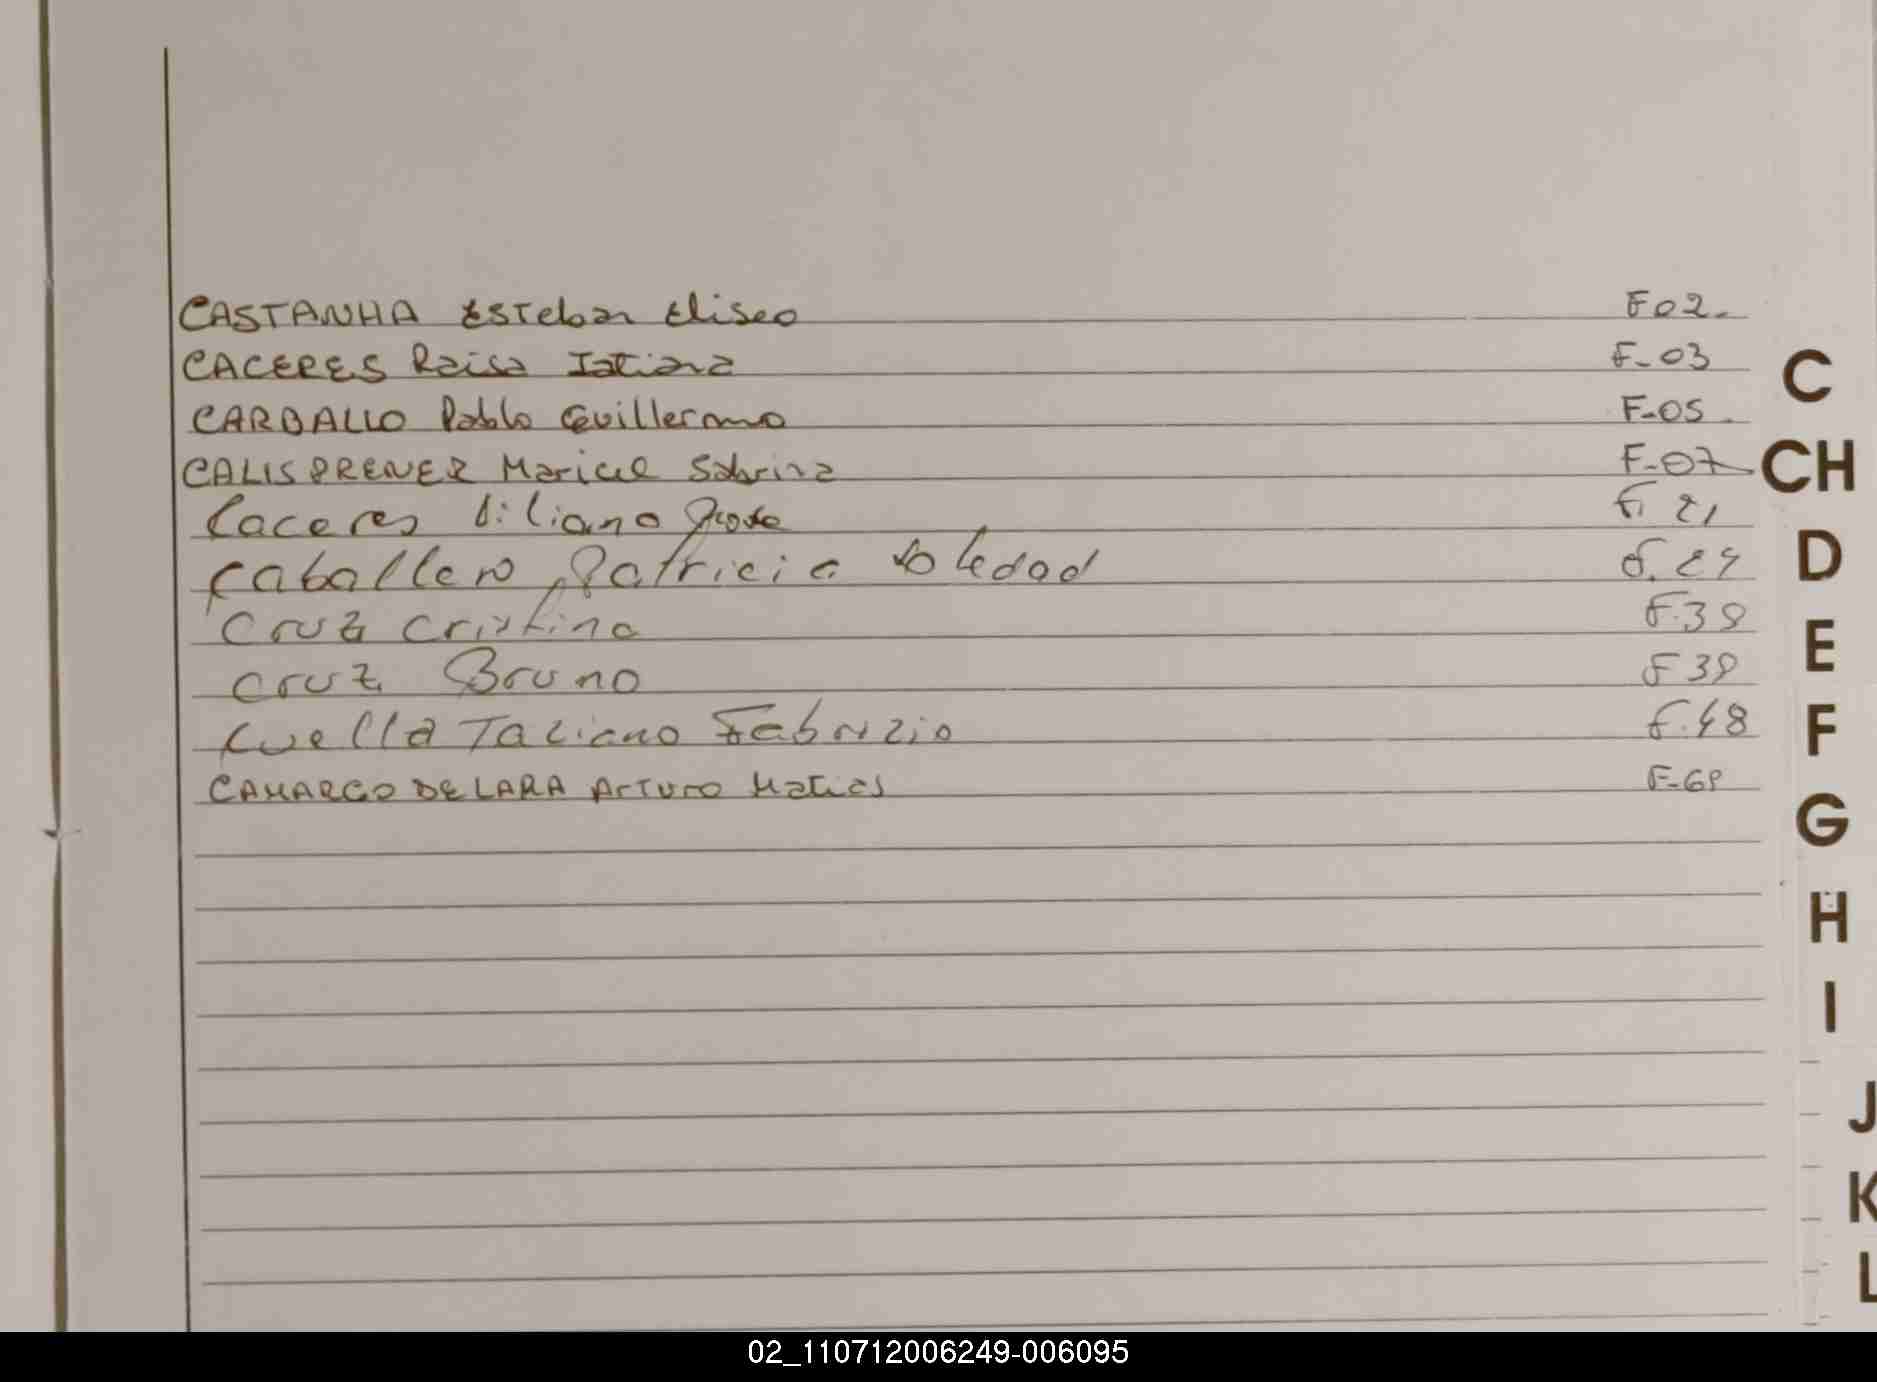 CASTANHA Esteban Eliseo F02.
CACERES Raisa Tatiana F-03
C
CARBALLO Pablo Guillermo F-05.
CALISPRENER Maricel Sabrina F-07
CH
Caceres liliano F. 21
Caballero Patricia Soledad F. 24
D
Cruz Cristina F.39
E
Cruz Bruno F 39
Cuella Taziano Fabrizio F.48
F
CAMARGO DE LARA Arturo Matias F-68
G
H
I
J
K
L
02_110712006249-006095